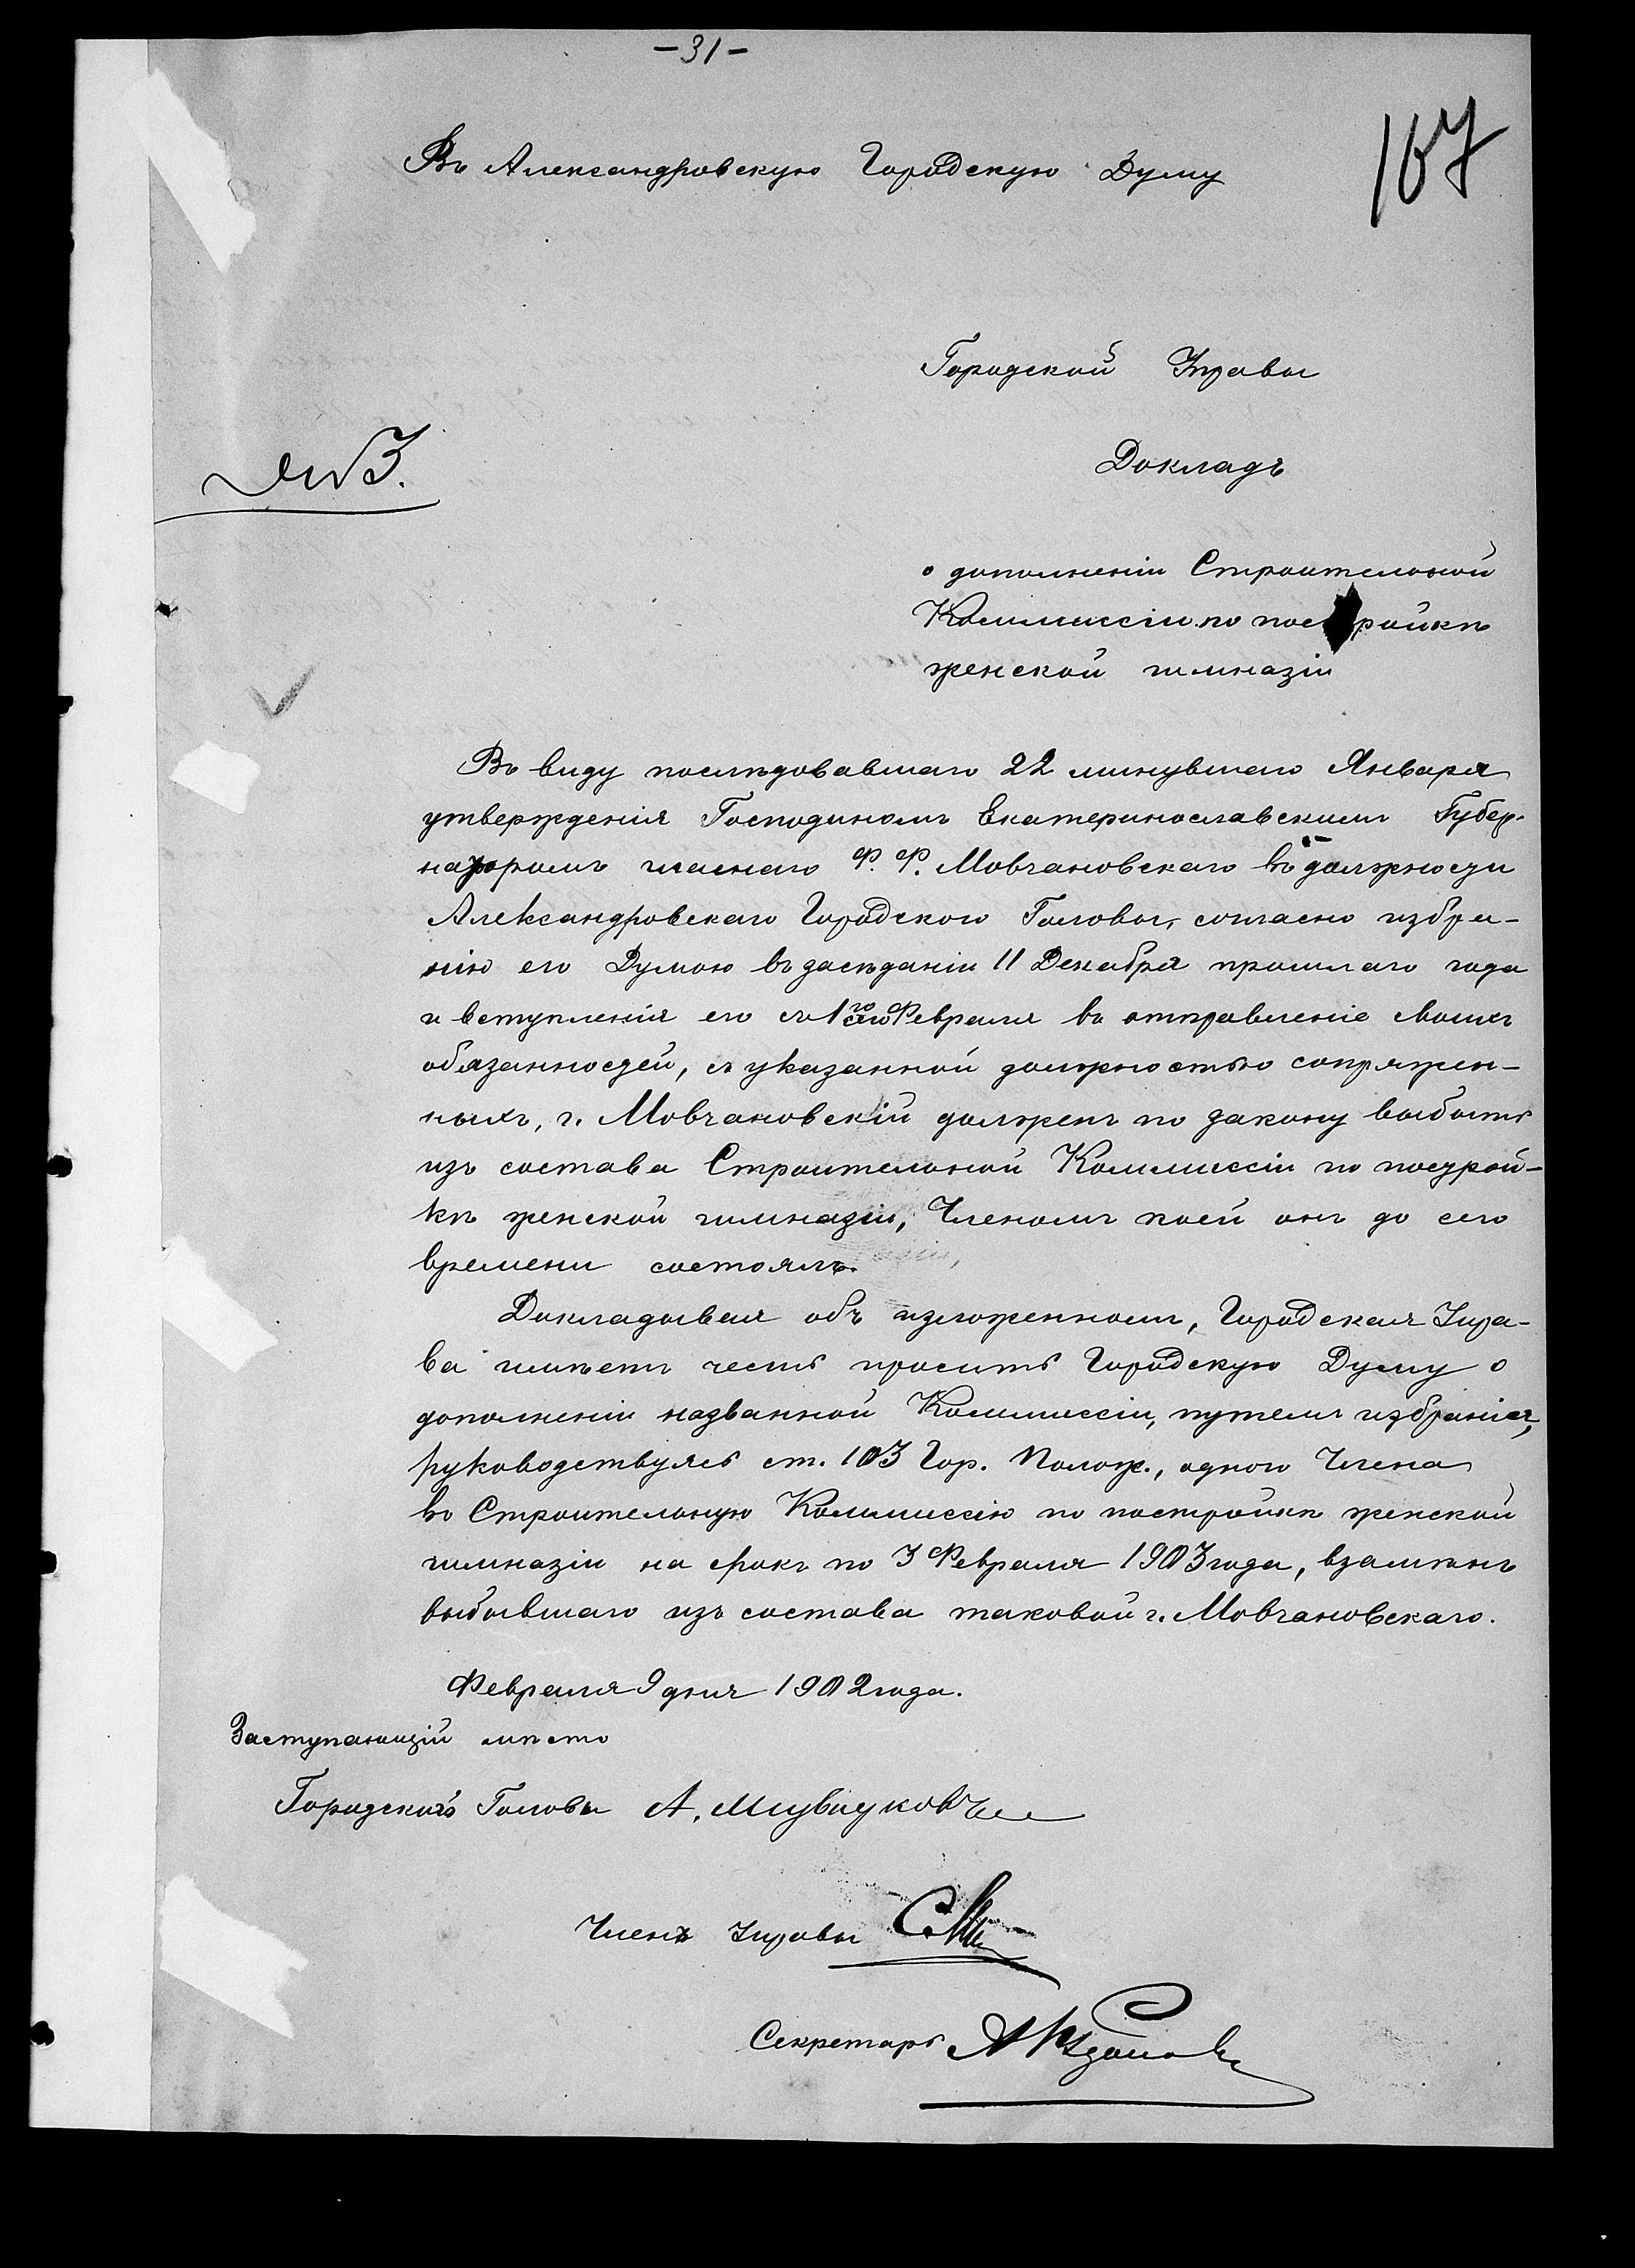 -31-
107
Въ Александровскую Городскую Думу
Городской Управы
№ 3.
Докладъ
о дополненіи Строительной
Коммиссіи по постройкѣ
женской гимназіи
Въ виду послѣдовавшаго 22 минувшаго Января
утвержденія Господиномъ Екатеринославскимъ Губер-
наторомъ гласнаго Ф. Ф. Мовчановскаго въ должности
Александровскаго Городского Головы, согласно избра-
нію его Думою въ засѣданіи 11 Декабря прошлаго года
и вступленія его съ 1го сего Февраля въ отправленіе своихъ
обязанностей, съ указанной должностью сопряжен-
ныхъ, г. Мовчановскій долженъ по закону выбыть
изъ состава Строительной Коммиссіи по построй-
кѣ женской гимназіи, Членомъ коей онъ до сего
времени состоялъ.
Докладывая объ изложенномъ, Городская Упра-
ва имѣетъ честь просить Городскую Думу о
дополненіи названной Коммиссіи, путемъ избранія,
руководствуясь ст. 103 Гор. Полож., одного Члена
въ Строительную Коммиссію по постройкѣ женской
гимназіи на срокъ по 3 Февраля 1903 года, взамѣнъ
выбывшаго изъ состава таковой г. Мовчановскаго.
Февраля 9 дня 1902 года.
Заступающій мѣсто
Городского Головы А.
Членъ Управы
Секретарь